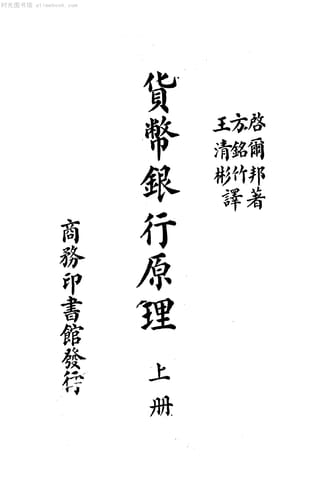 时光图书馆 alimebook.com
啓爾邦著
方銘竹
王清彬 譯
貨幣銀行原理 上册
商務印書館發行